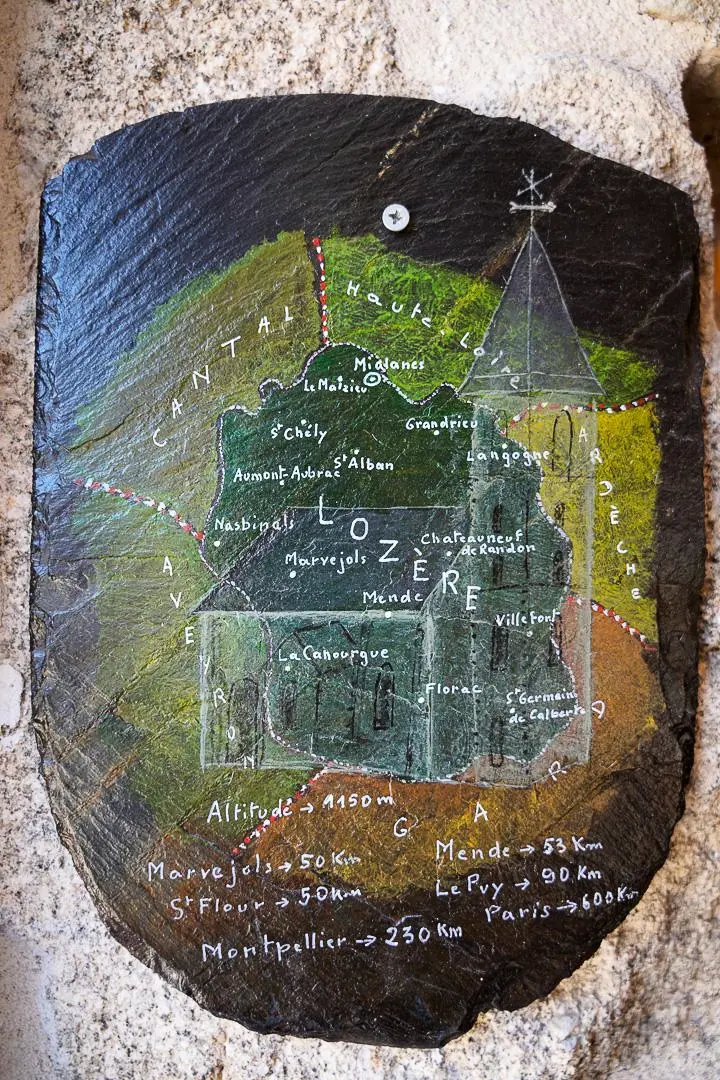 CANTAL
Haute.Loire
Mialanes
Le Malzieu
St Chély
Grandrieu
St Alban
Langogne
Aumont-Aubrac
ARDÈCHE
LOZÈRE
Nasbinals
Chateauneuf
de Randon
Marvejols
AVEYRON
Mende
Villefont
La Canourgue
Florac
St Germain
de Calberte
GARD
Altitude → 1150 m
Marvejols → 50 Km
Mende → 53 Km
St Flour → 50 Km
Le Puy → 90 Km
Paris → 600 Km
Montpellier → 230 Km